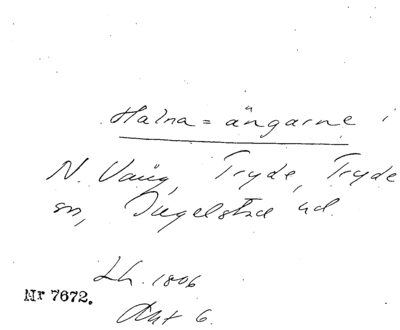 Halna = ängarne i
N. Vång, Tryde, Tryde
sn, Ingelstad hd.
Lh. 1806
Nr 7672.
Akt 6.